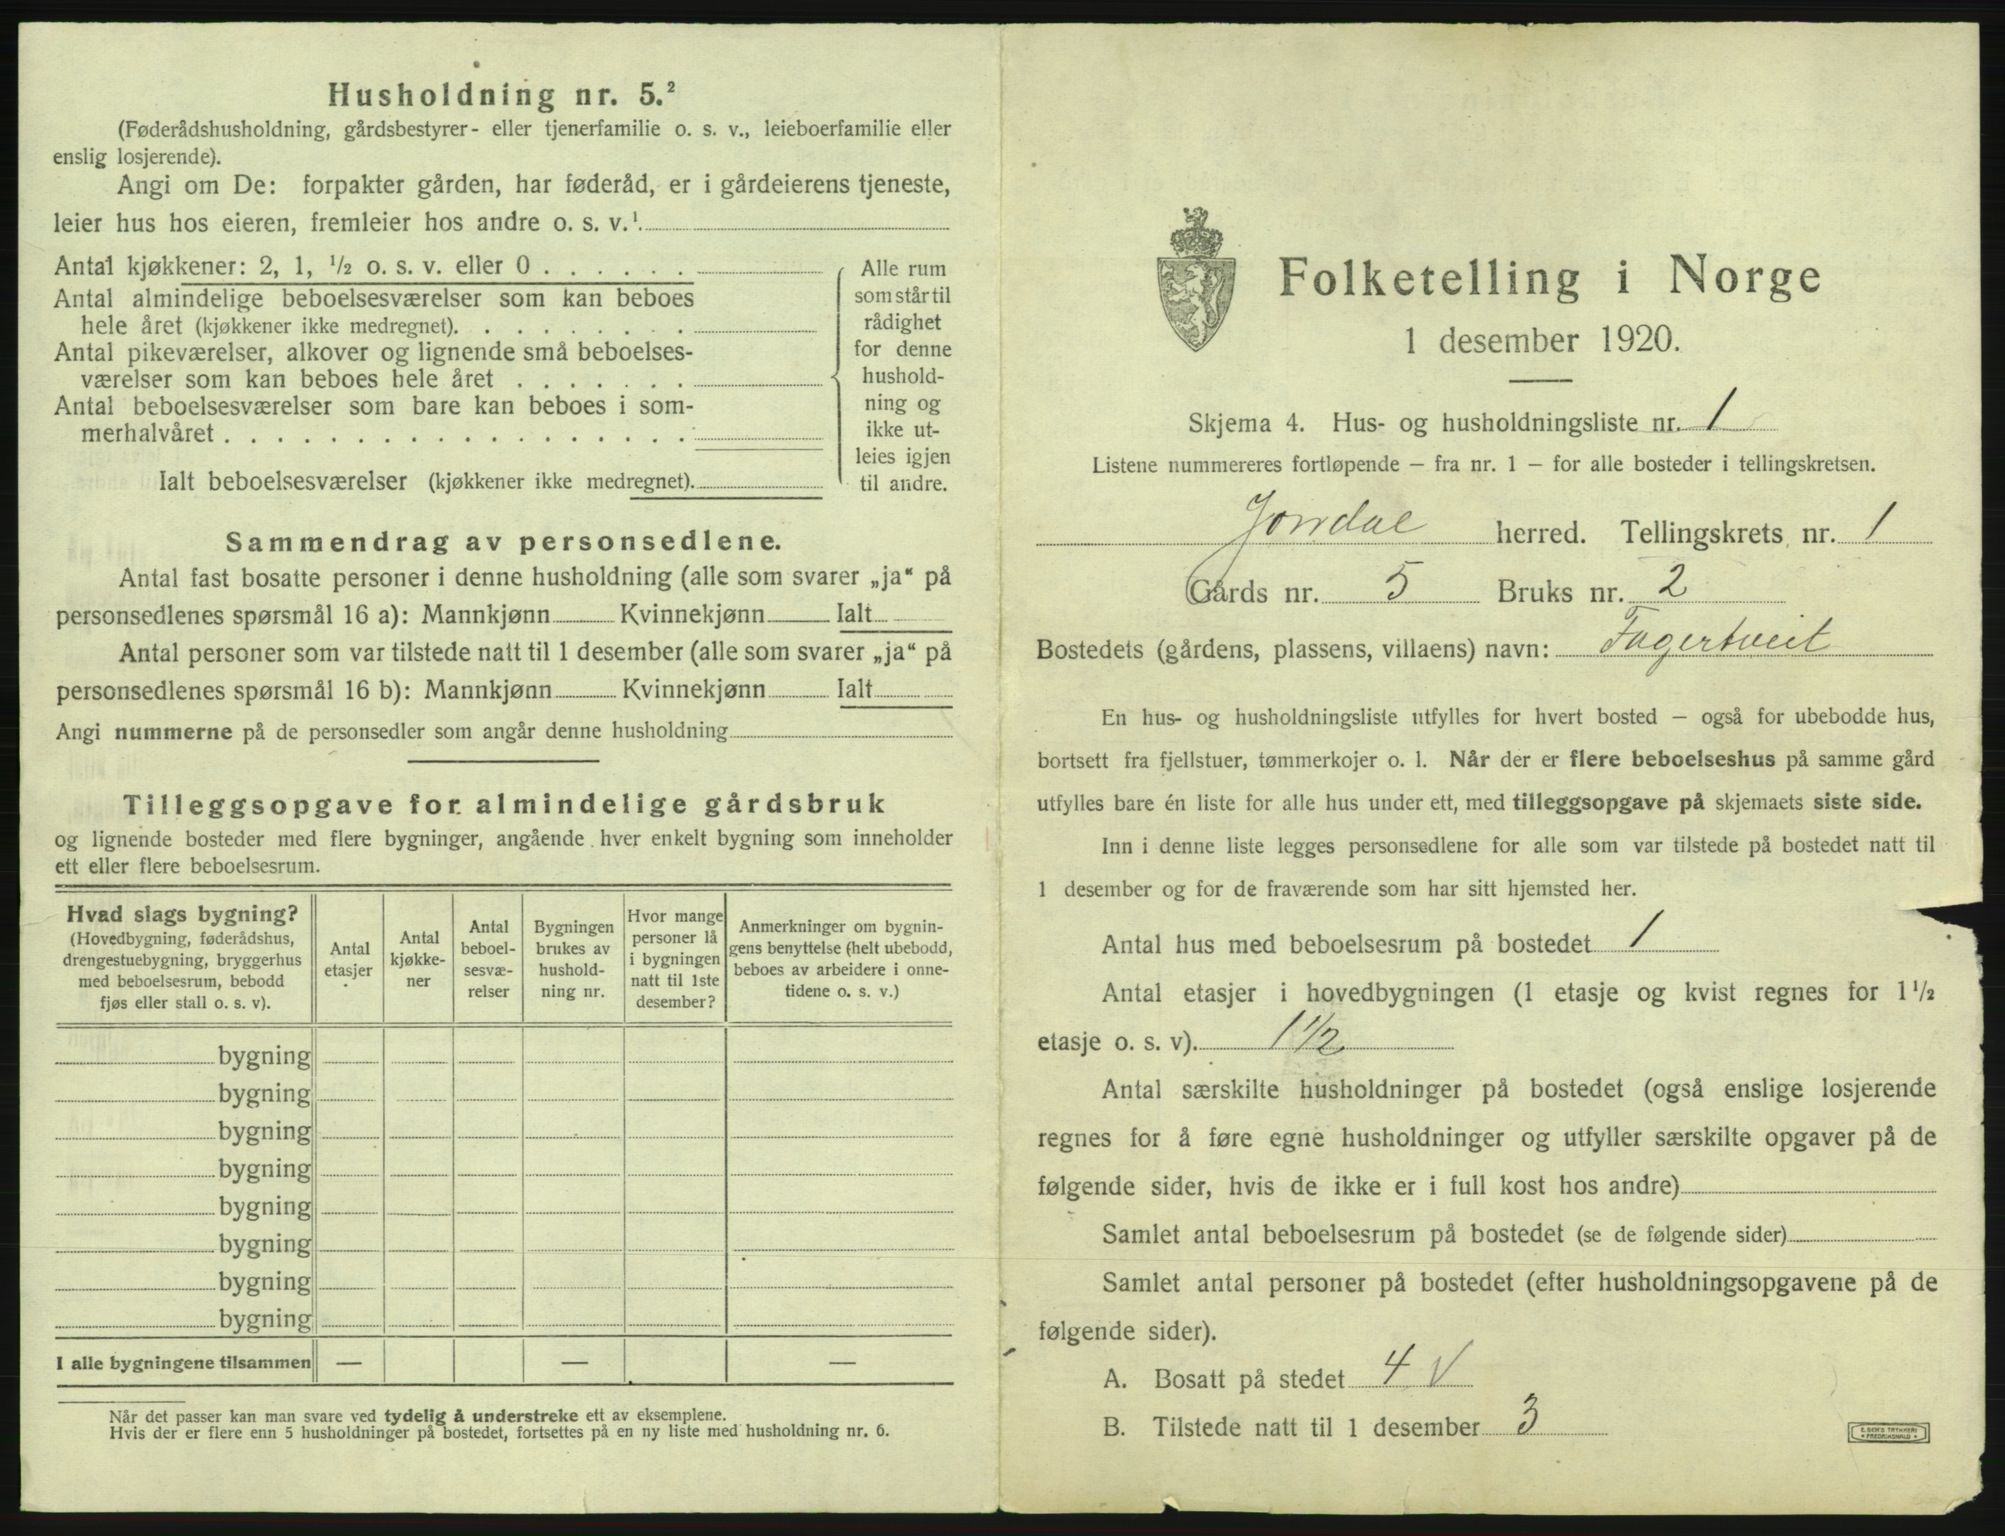 Husholdning nr. 5.²
(Føderådshusholdning, gårdsbestyrer- eller tjenerfamilie o. s. v., leieboerfamilie eller
enslig losjerende).
Angi om De: forpakter gården, har føderåd, er i gårdeierens tjeneste,
leier hus hos eieren, fremleier hos andre o. s. v.¹
Antal kjøkkener: 2, 1, ½ o. s. v. eller 0 . . . . . .
Antal almindelige beboelsesværelser som kan beboes
hele året (kjøkkener ikke medregnet). . . . . . . . .
Antal pikeværelser, alkover og lignende små beboelses-
værelser som kan beboes hele året . . . . . . .
Antal beboelsesværelser som bare kan beboes i som-
merhalvåret . . . . . . . . . . . . . . . . . .
Ialt beboelsesværelser (kjøkkener ikke medregnet).
Alle rum
som står til
rådighet
for denne
hushold-
ning og
ikke ut-
leies igjen
til andre.
Sammendrag av personsedlene.
Antal fast bosatte personer i denne husholdning (alle som svarer „ja“ på
personsedlenes spørsmål 16 a): Mannkjønn Kvinnekjønn Ialt
Antal personer som var tilstede natt til 1 desember (alle som svarer „ja“ på
personsedlenes spørsmål 16 b): Mannkjønn Kvinnekjønn Ialt
Angi nummerne på de personsedler som angår denne husholdning
Tilleggsopgave for almindelige gårdsbruk
og lignende bosteder med flere bygninger, angående hver enkelt bygning som inneholder
ett eller flere beboelsesrum.
Hvad slags bygning?
(Hovedbygning, føderådshus,
drengestuebygning, bryggerhus
med beboelsesrum, bebodd
fjøs eller stall o. s. v).
Antal
etasjer
Antal
kjøkke-
ner
Antal
beboel-
sesvæ-
relser
Bygningen
brukes av
hushold-
ning nr.
Hvor mange
personer lå
i bygningen
natt til 1ste
desember?
Anmerkninger om bygnin-
gens benyttelse (helt ubebodd,
beboes av arbeidere i onne-
tidene o. s. v.)
bygning
bygning
bygning
bygning
bygning
bygning
bygning
bygning
I alle bygningene tilsammen — — —
Når det passer kan man svare ved tydelig å understreke ett av eksemplene.
Hvis der er flere enn 5 husholdninger på bostedet, fortsettes på en ny liste med husholdning nr. 6.
Folketelling i Norge
1 desember 1920.
Skjema 4. Hus- og husholdningsliste nr. 1
Listene nummereres fortløpende – fra nr. 1 – for alle bosteder i tellingskretsen.
Jondal herred. Tellingskrets nr. 1
Gårds nr. 5 Bruks nr. 2
Bostedets (gårdens, plassens, villaens) navn: Fagertveit
En hus- og husholdningsliste utfylles for hvert bosted – også for ubebodde hus,
bortsett fra fjellstuer, tømmerkojer o. l. Når der er flere beboelseshus på samme gård
utfylles bare én liste for alle hus under ett, med tilleggsopgave på skjemaets siste side.
Inn i denne liste legges personsedlene for alle som var tilstede på bostedet natt til
1 desember og for de fraværende som har sitt hjemsted her.
Antal hus med beboelsesrum på bostedet 1
Antal etasjer i hovedbygningen (1 etasje og kvist regnes for 1½
etasje o. s. v). 1½
Antal særskilte husholdninger på bostedet (også enslige losjerende
regnes for å føre egne husholdninger og utfyller særskilte opgaver på de
følgende sider, hvis de ikke er i full kost hos andre)
Samlet antal beboelsesrum på bostedet (se de følgende sider)
Samlet antal personer på bostedet (efter husholdningsopgavene på de
følgende sider).
A. Bosatt på stedet 4 V
B. Tilstede natt til 1 desember 3